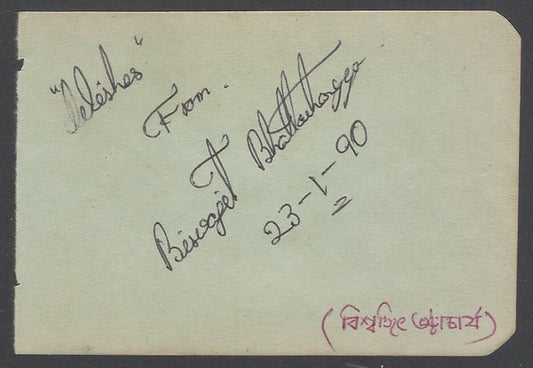 "Wishes"
From.
Biswajit Bhattacharyya
23-1-90
(বিশ্বজিৎ ভট্টাচার্য)